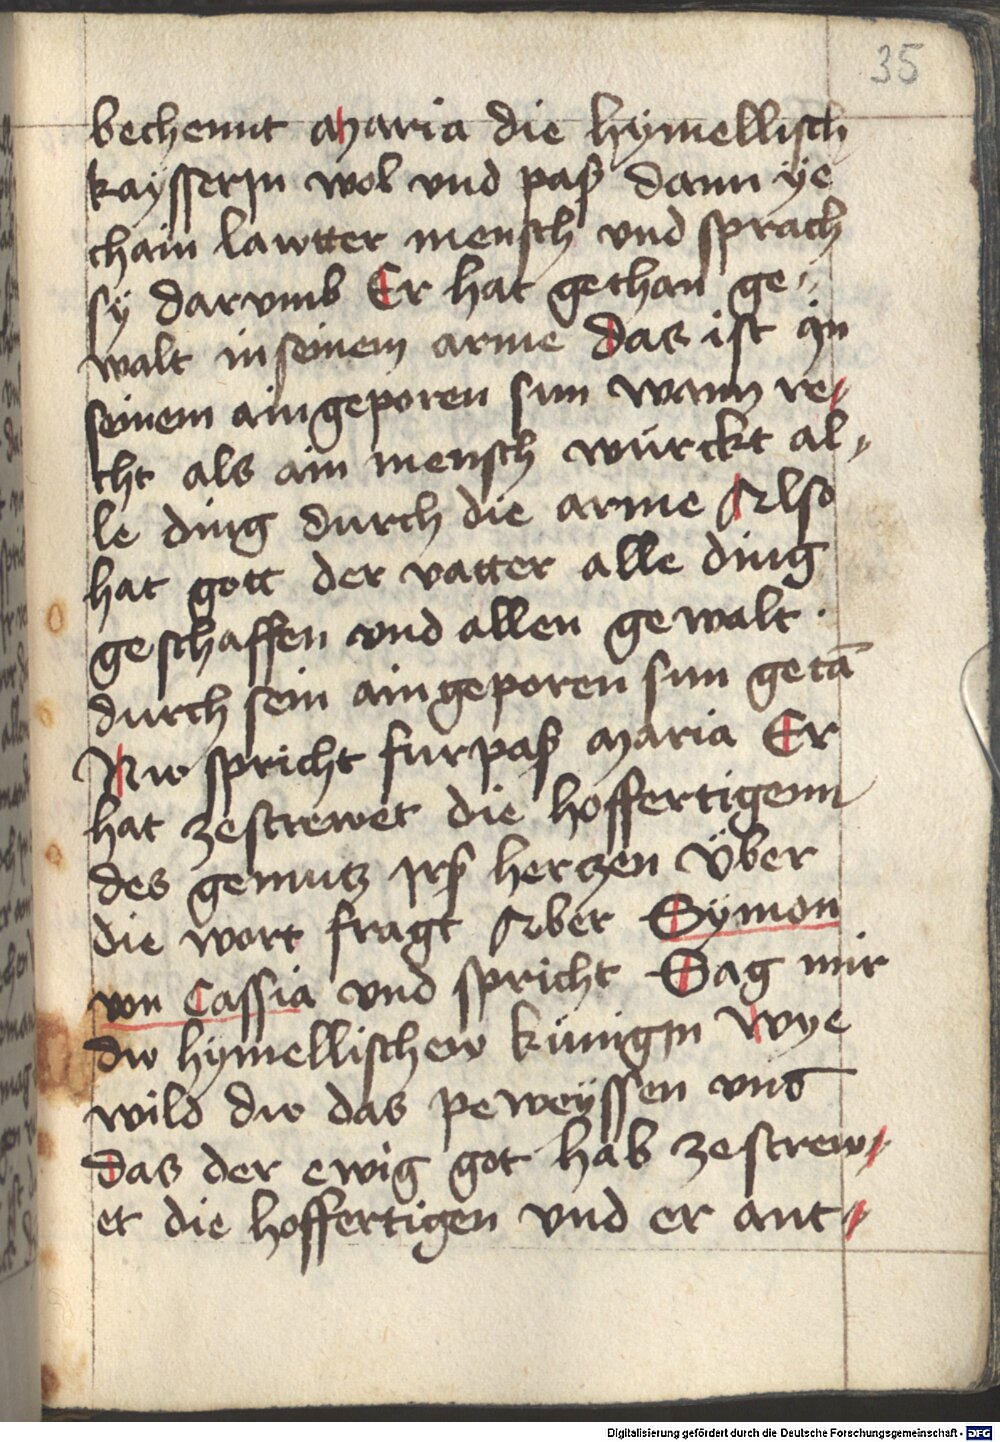 35
bechennt Maria die hymellisch
kaÿsserin wol vnd paß dann ÿe
chain lawtter mensch vnd sprach
sÿ darvmb Er hat gethan ge⸗
walt in seinem arme Das ist in
seinem aingeporen sun wann re⸗
cht als ain mensch würckt al⸗
le ding durch die arme Also
hat gott der vatter alle ding
geschaffen vnd allen gewalt ·
durch sein aingeporen sun getā
Nw spricht furpaß Maria Er
hat zestrewet die hoffertigenn
des gemutz irß hertzen Über
die wort fragt Aber Sÿmon
von Cassia vnd spricht Sag mir
dw hÿmellischew künigin Wye
wild dw das peweÿssen vnd
Das der ewig got hab zestrew⸗
et die hoffertigen vnd er ant⸗
Digitalisierung gefördert durch die Deutsche Forschungsgemeinschaft - DFG